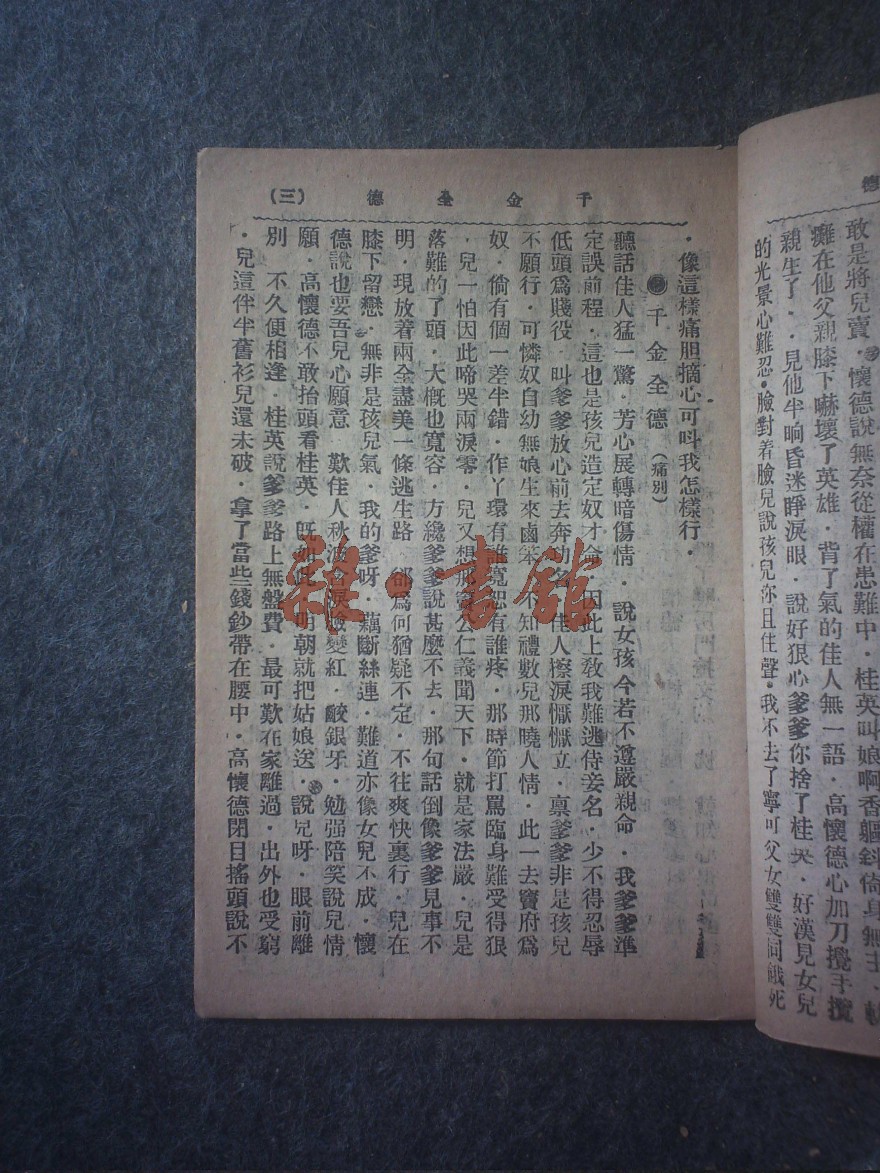 德
敢是將兒賣．懷德說無奈從權在患難中．桂英叫娘啊香軀斜倚身無主．
癱在他父親膝下嚇壞了英雄．背了氣的佳人無一語．高懷德心加刀攪手攬
親生了．．見他半晌昏迷睜淚眼．說好狠心爹爹你捨了桂英．好漢見女兒
的光景心難忍．臉對着臉兒說孩兒你且住聲．我不去了寧可父女雙雙同餓死
千金全德 （三）
．像這樣痛胆摘心可呌我怎樣行．
千金全德（痛別）
聽話佳人猛一驚．芳心展轉暗傷情．說女孩今若不遵嚴親命．我爹爹準
定誤前程．這也是孩兒造定奴才命．因此上敎我難逃侍妾名．少不得忍辱
低頭爲賤役．叫爹爹放心前去奔功名．佳人擦淚慨慨立．禀爹爹非是孩兒
不願行．可憐奴自幼無娘生來鹵笨．不知禮數兒那曉人情．此一去竇府爲
奴．倘有個一差半錯．作丫環有誰寬恕有誰疼．那時節打罵臨身難受得狠
．兒一怕因此啼哭兩淚零．兒又想那竇公仁義聞天下．就是家法嚴．兒是
落難的了頭．大概也寬容．方纔爹爹說甚麼不去．那句話倒像爹爹見事不
明．現放着兩全盡美一條逃生路．郤爲何猶疑不定．不往爽快裏行．兒在
膝下留戀．無非是孩兒氣．我的爹呀．藕斷絲連．難道亦像女兒不成．懷
德說也要吾兒心願意．歎佳人秋波含淚臉變紅．齩銀牙．勉强陪笑說兒情
願．高懷德不敢抬頭看桂英．既如此．明朝就把姑娘送．說兒呀．眼前離
別．不久便相逢．桂英說爹爹路上無盤費．最可歎在家離過．出外也受窮
．兒這伴半舊衫兒還未破．拿了當些錢鈔帶在腰中．高懷德閉目搖頭說不
雜·書館